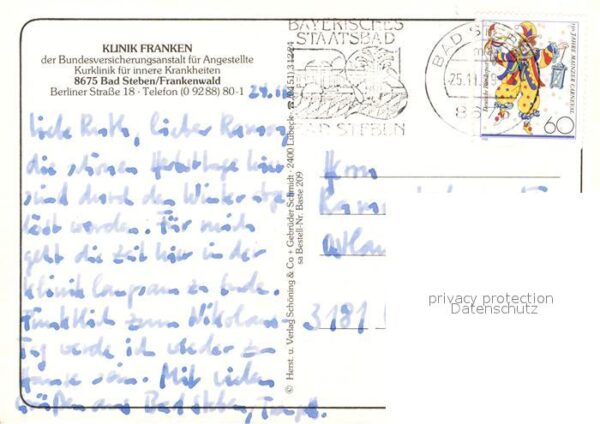 KLINIK FRANKEN
der Bundesversicherungsanstalt für Angestellte
Kurklinik für innere Krankheiten
8675 Bad Steben/Frankenwald
Berliner Straße 18 · Telefon (0 92 88) 80-1
lieber
die schönen Herbsttage hier
sind durch den Winter abge
löst worden. Für mich
geht die Zeit hier in der
Klinik langsam zu Ende.
Pünktlich zum Nikolaus
Tag werde ich wieder zu
Hause sein. Mit vielen
Grüßen aus Bad Steben,
© Herst. u. Verlag Schöning & Co + Gebrüder Schmidt · 2400 Lübeck
sa Bestell-Nr. Baste 209
BAYERISCHES
STAATSBAD
BAD STEBEN
BAD S
-25.11
Deutsche Bundespost
150 JAHRE MAINZER CARNEVAL
60
Herrn
3181
privacy protection
Datenschutz